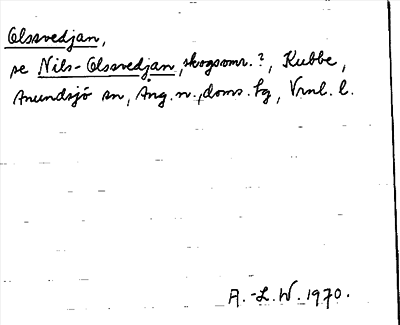 Olssvedjan,
se Nils-Olssvedjan, skogsomr.?, Kubbe,
Anundsjö sn, Ång. n., doms. tg, Vrnl. l.
A.-L.W. 1970.